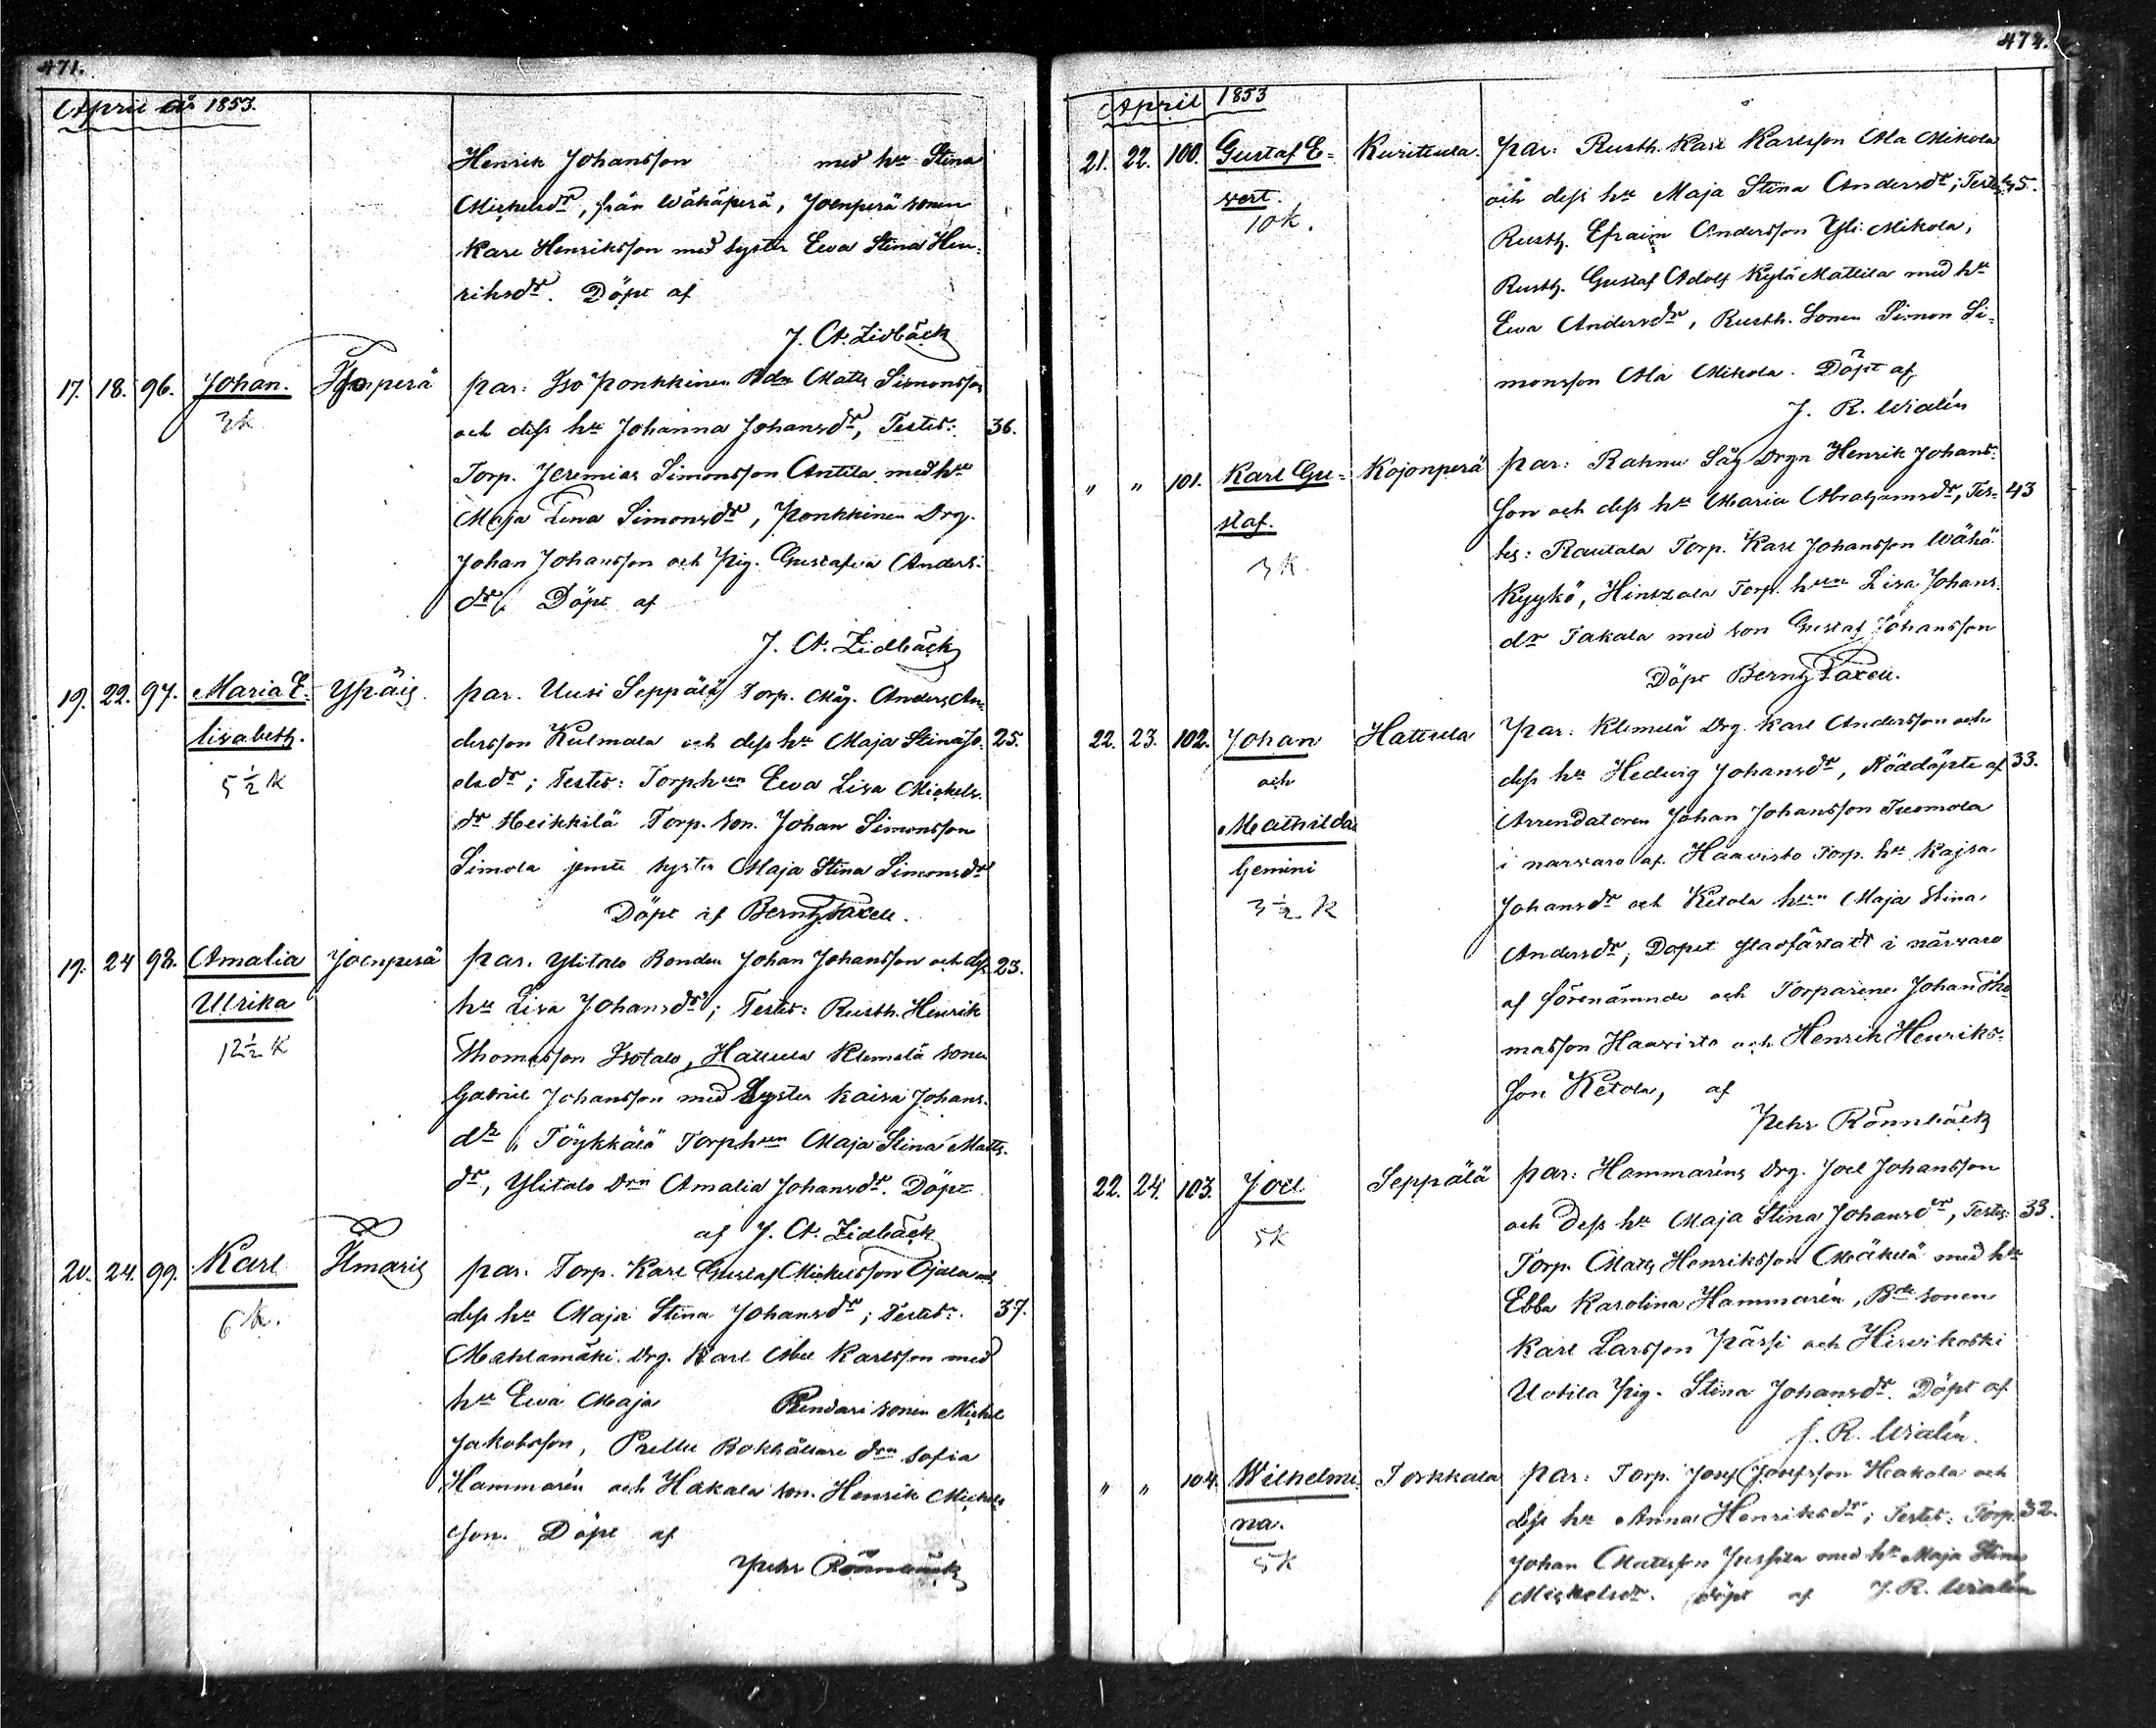 471.
April år 1853.
Henrik Johansson med hu Stina
Michelsdr, från Wähäperä, Joenperä sonen
Karl Henriksson med syster Ewa Stina Hen-
riksdr. Döpt af
J. A. Lidbäck
17. 18. 96. Johan. perä par: Iso Ponkkinen Bdn Matts Simonsson
3k och dess hu Johanna Johansdr, Testes: 36.
Torp. Jeremias Simonsson Antila med hu
Maja Lena Simonsdr, Ponkkinen Drg.
Johan Johansson och Pig. Gustafva Anders-
dr. Döpt af
J. A. Lidbäck
19. 22. 97. Maria E- Ypäis. par. Uusi Seppälä Torp. Måg. Anders An-
lisabeth. dersson Kulmala och dess hu Maja Stina Jo- 25.
5 1/2 K elsdr; Testes: Torphun Ewa Lisa Michels-
dr Heikkilä Torp. son. Johan Simonsson
Simola jemte syster Maja Stina Simonsdr
Döpt af Bernh Taxell.
19. 24 98. Amalia Joenperä par. Ylitalo Bonden Johan Johansson och dess 23.
Ulrika hu Lisa Johansdr; Testes: Rusth. Henrik
12 1/2 K Thomasson Isotalo, Hattula Klemelä sonen
Gabriel Johansson med Syster Kaisa Johans-
dr, Töykkälä Torphun Maja Stina Matts-
dr, Ylitalo Drn Amalia Johansdr. Döpt
af J. A. Lidbäck
20. 24. 99. Karl Ilmaris par. Torp. Karl Gustaf Mickelsson Ojala och
6 k. dess hu Maja Stina Johansdr; Testes: 37.
Mahlamäki Drg. Karl Abel Karlsson med
hu Ewa Maja Pendari sonen Michel
Jakobsson, Prellu Bokhållare drn Sofia
Hammarén och Hakala son. Henrik Michels-
son. Döpt af
Pehr Rönnbäck
472.
April 1853
21. 22. 100. Gustaf E- Kurittula. par: Rusth. Karl Karlsson Ala Mikola
wert. och dess hu Maja Stina Andersdr; Testes: 45.
10k. Rusth. Efraim Andersson Yli Mikola,
Rusth. Gustaf Adolf Kylä Mattila med hu
Ewa Andersdr, Rusth. Sonen Simon Si-
monsson Ala Mikola. Döpt af
J. R. Widlén
" " 101. Karl Gu- Kojonperä par: Rahnu Såg Drgn Henrik Johans-
staf. son och dess hu Maria Abrahamsdr, Tes- 43
3 K. tes: Rautala Torp. Karl Johansson Wähä
Kyykö, Hinszala Torp. hun Lisa Johans-
dr Takala med son Gustaf Johansson
Döpt Bernh Taxell.
22. 23. 102. Johan Hattula par: Klemelä Drg. Karl Andersson och
och dess hu Hedwig Johansdr, Nöddöpte af 33.
Mathilda Arrendatoren Johan Johansson Tuomola
Gemini i narvaro af Haavisto Torp. hu Kajsa
3 1/2 K Johansdr och Ketola hun Maja Stina
Andersdr, Dopet stadfästadt i närvaro
af förenämnde och Torparene Johan Tho-
masson Haavisto och Henrik Henriks-
son Ketola, af
Pehr Rönnbäck
22. 24. 103. Joel Seppälä par: Hammaréns Drg. Joel Johansson
5k och dess hu Maja Stina Johansdr, Testes: 33.
Torp. Matts Henriksson Mäkelä med hu
Ebba Karolina Hammarén, Bde sonen
Karl Larsson Pärssi och Hirvikoski
Uotila Pig. Stina Johansdr. Döpt af
J. R. Widlén.
" " 104. Wilhelmi- Torkkala par: Torp. Josef Josefsson Hakala och
na. dess hu Anna Henriksdr; Testes: Torp. 32.
5k Johan Mattsson Jussila med hu Maja Stina
Michelsdr. Döpt af J. R. Widlén